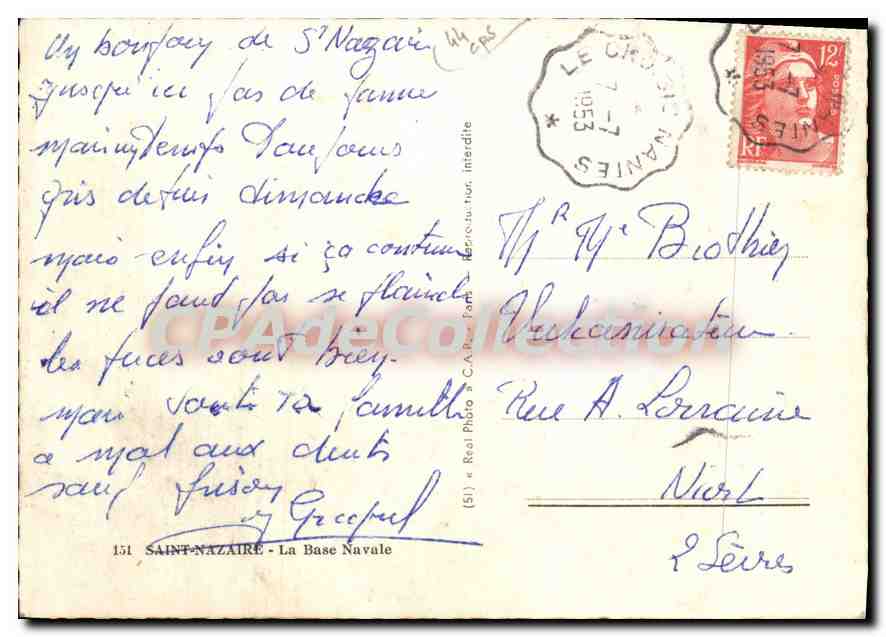 Un bonjour de St Nazaire
jusqu'ici pas de panne
mais
gris depuis dimanche
mais enfin si ça continue
il ne faut pas se plaindre
les puces vont bien
mais toute la famille
a mal aux dents
sauf
44
cps
LE CROISIC NANTES
7 - 7
1953
*
LE CROISIC NANTES
7 - 7
1953
*
12F
RF
Mr Me Brothier
Vulcanisateur
Rue A. Lorraine
Niort
2 Sèvres
(51) « Real Photo » C.A.P. - Paris - Reproduction interdite
151 SAINT-NAZAIRE - La Base Navale
CPAdeCollection